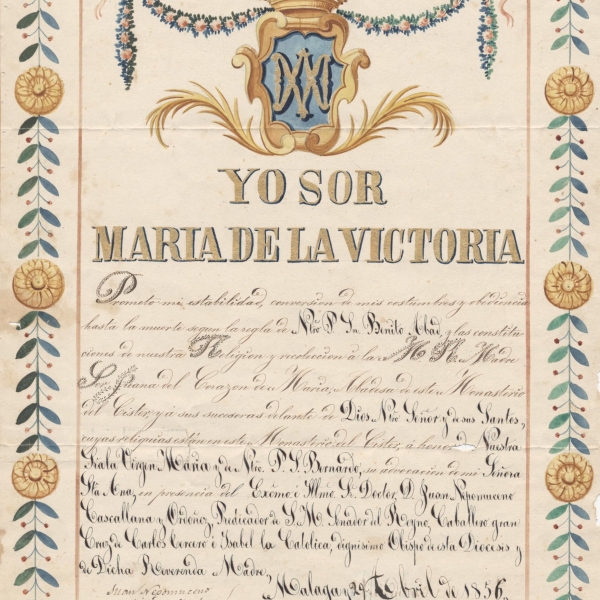 YO SOR
MARIA DE LA VICTORIA
Prometo mi estabilidad, conversion de mis costumbres y obediencia
hasta la muerte segun la regla de Ntro P. Sn. Benito Abad, y las constitu
ciones de nuestra Religion y recoleccion á la M. R. Madre
Sor del Corazon de Maria, Abadesa de este Monasterio
del Cister, y á sus sucesoras delante de Dios Ntro Señor y de sus Santos,
cuyas reliquias están en este Monasterio del Cister, á honor d Nuestra
Virgen Maria y de Ntro. P. S. Bernardo, su advocacion de mi Señora
Sta Ana, en presencia del Excmo é Illmo Sr. Doctor, D. Juan Nepomuceno
Cascallana y Ordoñez, Predicador de S. M. Senador del Reyno, Caballero gran
Cruz de Carlos tercero é Isabel la Catolica, dignisimo Obispo de esta Diocesis y
de Dicha Reverenda Madre,
Malaga y 29 Abril de 1856.
Juan Nepomuceno